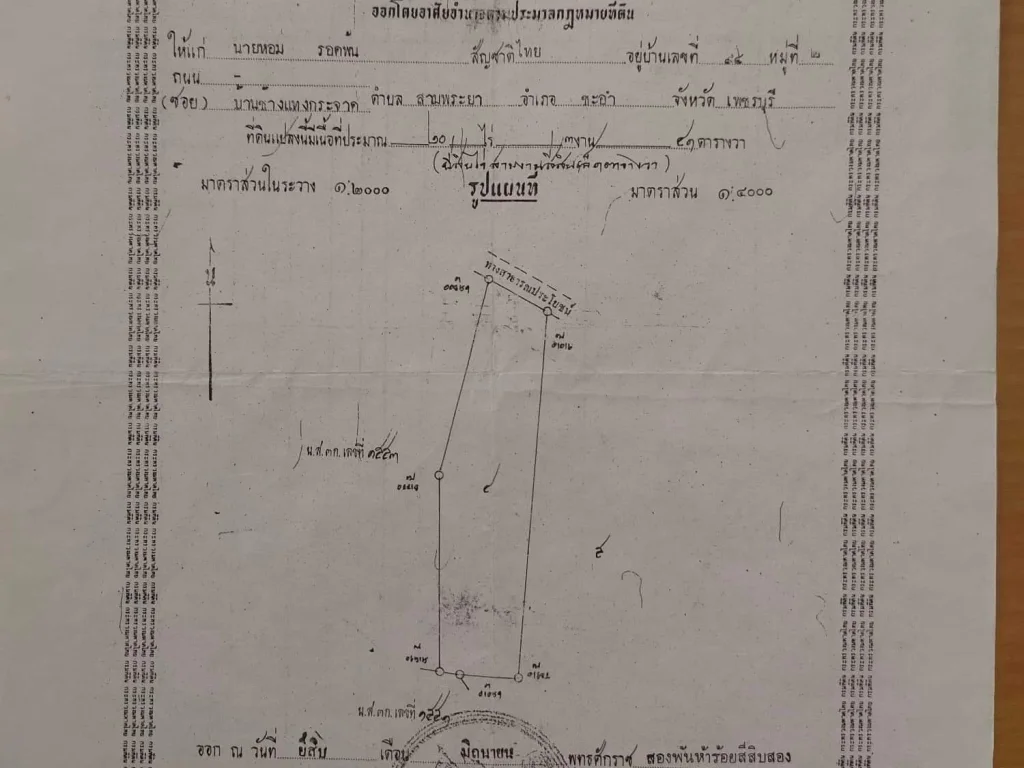 ออกโดยอาศัยอำนาจตามประมวลกฎหมายที่ดิน
ให้แก่ นายหอม รอดพ้น สัญชาติไทย อยู่บ้านเลขที่ ๙๕ หมู่ที่ ๒
ถนน -
(ซอย) บ้านช้างแทงกระจาด ตำบล สามพระยา อำเภอ ชะอำ จังหวัด เพชรบุรี
ที่ดินแปลงนี้มีเนื้อที่ประมาณ ๒๐ ไร่ ๓ งาน ๔๑ ตารางวา
(ยี่สิบไร่ สามงานสี่สิบเอ็ดตารางวา)
มาตราส่วนในระวาง ๑:๒๐๐๐ รูปแผนที่ มาตราส่วน ๑:๔๐๐๐
น
ทางสาธารณประโยชน์
น.ส.๓ก.เลขที่ ๑๕๕๓
๔
๕
น.ส.๓ก.เลขที่ ๑๕๕๑
ออก ณ วันที่ ยี่สิบ เดือน มิถุนายน พุทธศักราช สองพันห้าร้อยสี่สิบสอง